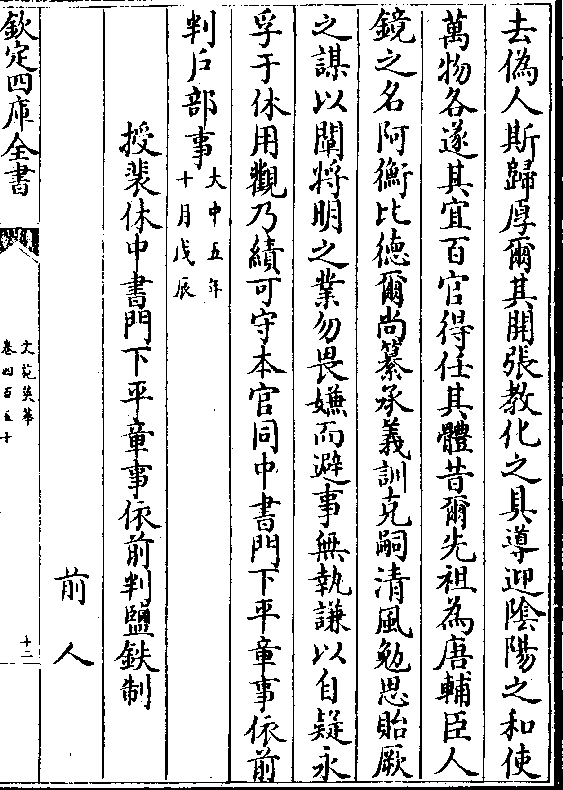 去偽人斯歸厚爾其開張教化之具導迎陰陽之和使
萬物各遂其宜百官得任其體昔爾先祖為唐輔臣人
鏡之名阿衡比德爾尚纂承義訓克嗣清風勉思貽厥
之謀以闡將明之業勿畏嫌而避事無執謙以自疑永
孚于休用觀乃績可守本官同中書門下平章事依前
判戶部事大中五年
十月戊辰
授裴休中書門下平章事依前判鹽鉄制
前人
欽定四庫全書
文苑英華
卷四百五十
十二